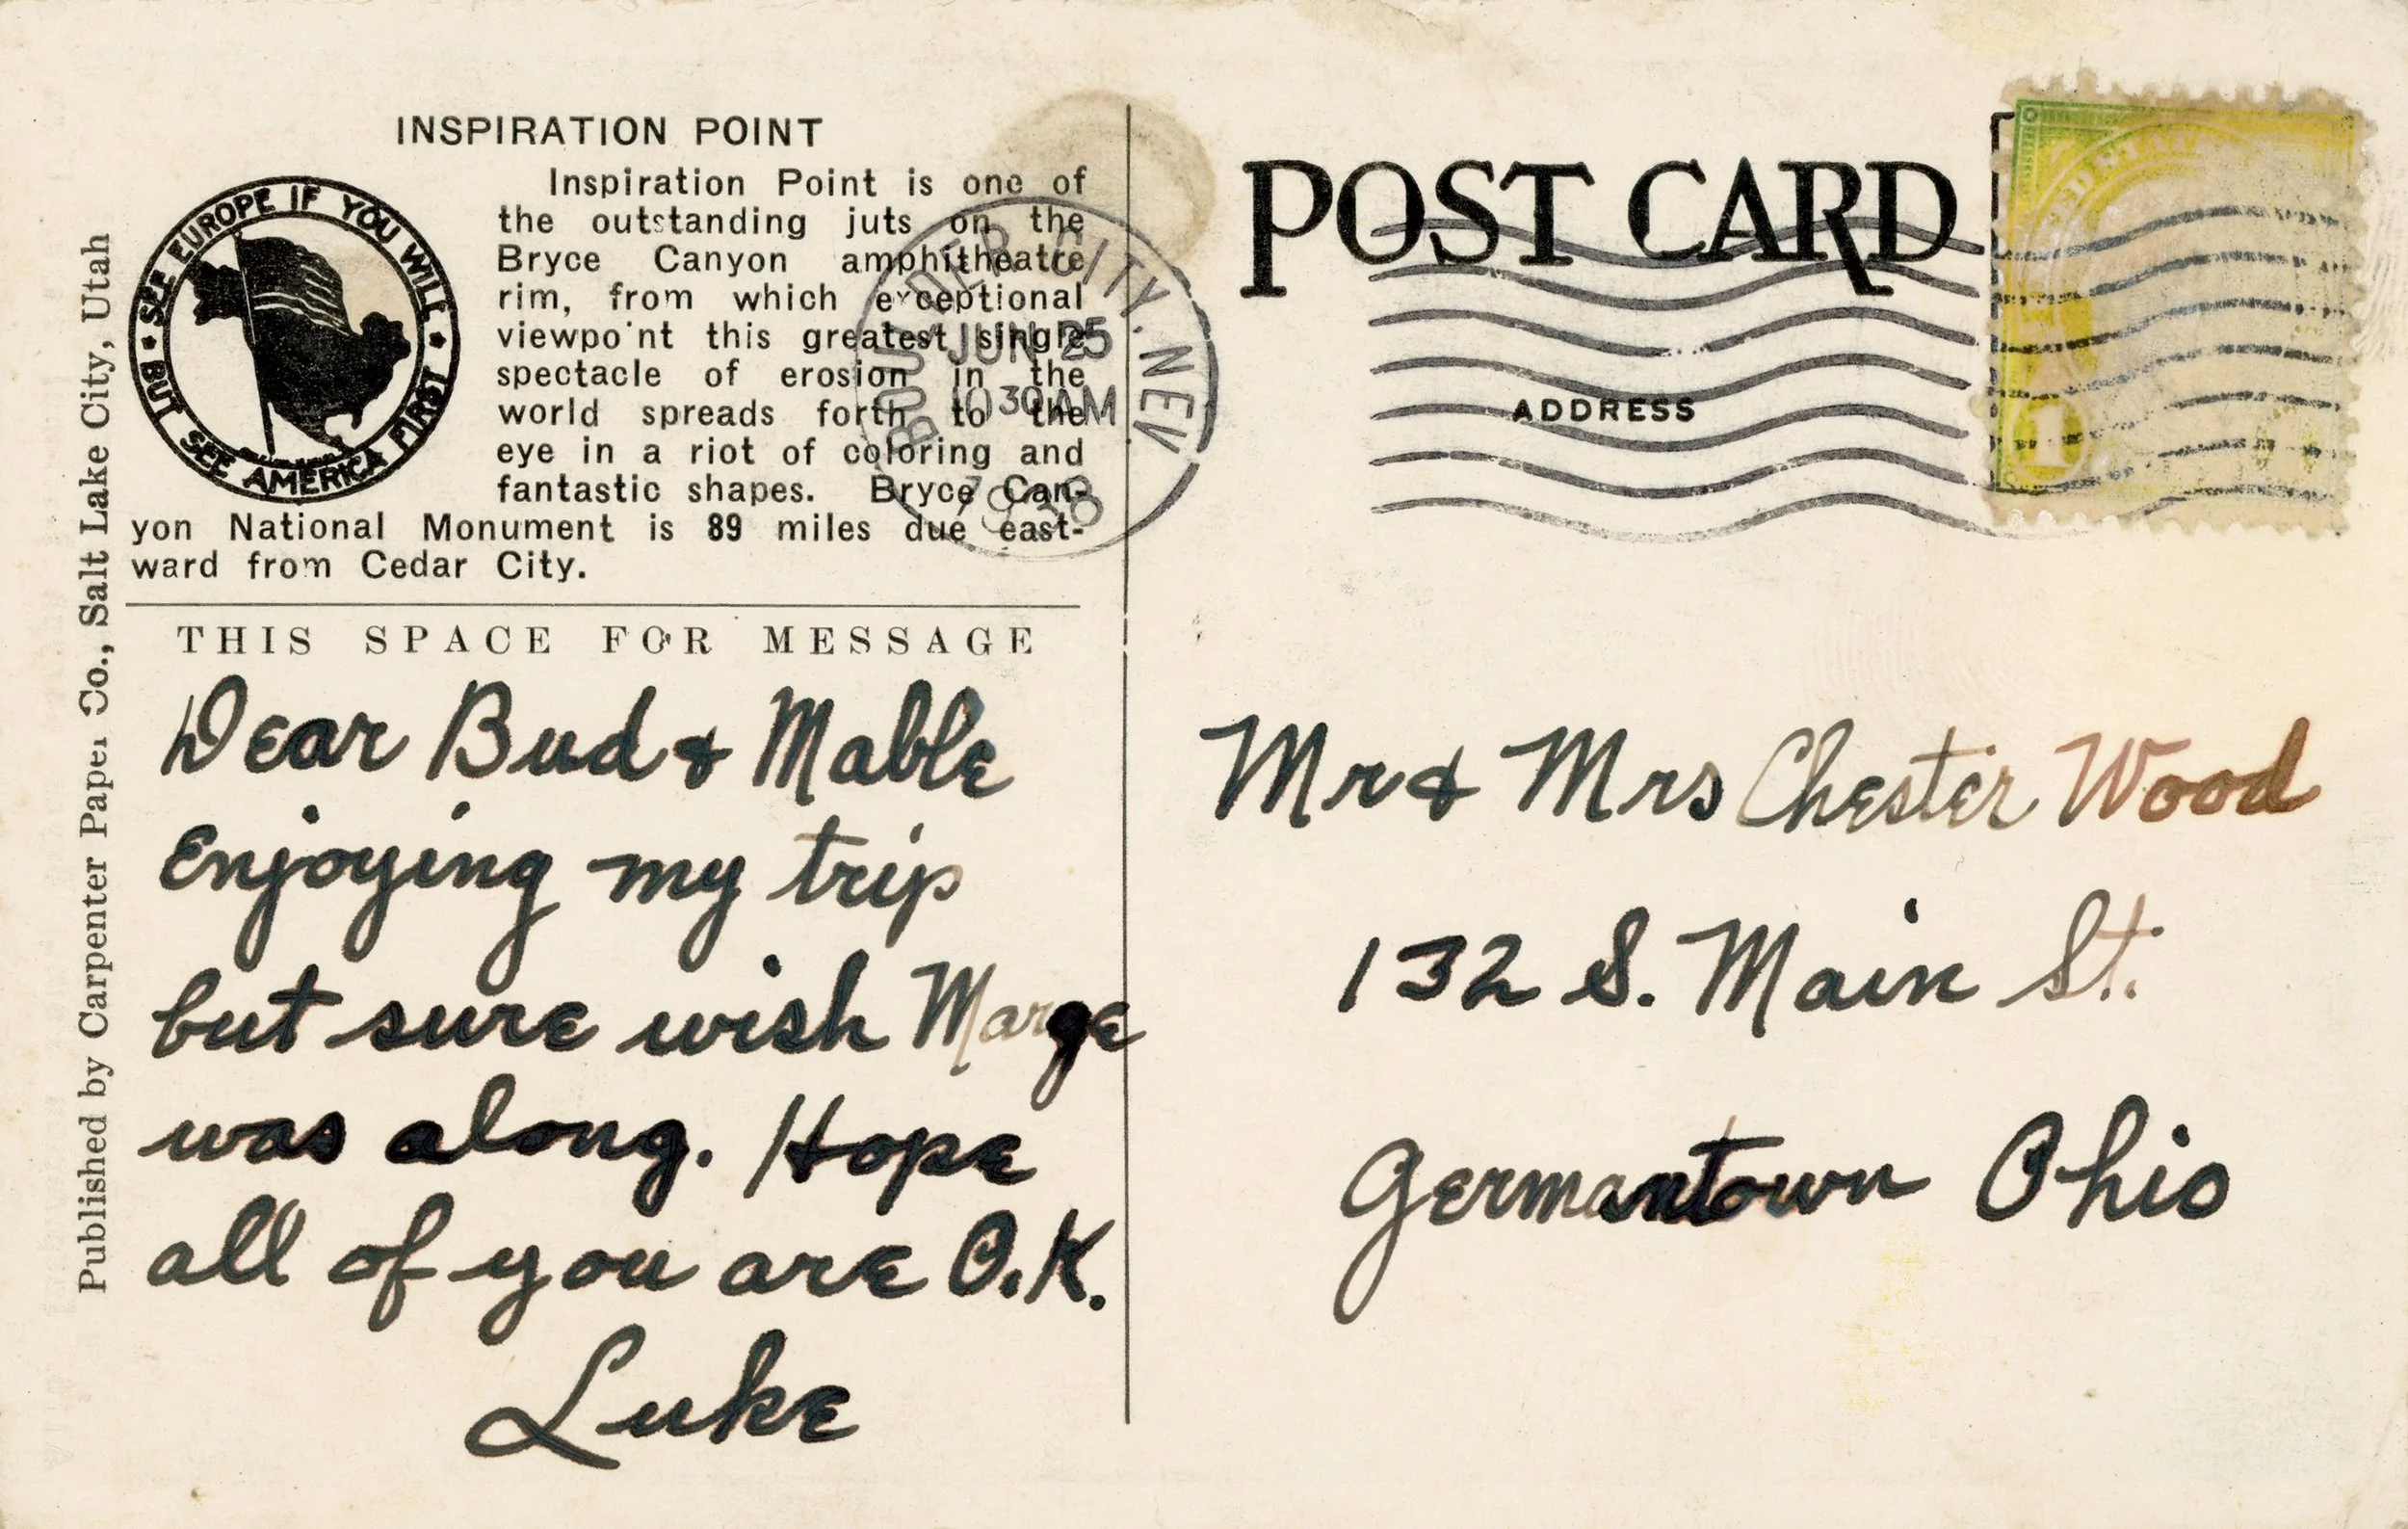 INSPIRATION POINT
SEE EUROPE IF YOU WILL
BUT SEE AMERICA FIRST
Inspiration Point is one of
the outstanding juts on the
Bryce Canyon amphitheatre
rim, from which exceptional
viewpoint this greatest single
spectacle of erosion in the
world spreads forth to the
eye in a riot of coloring and
fantastic shapes. Bryce Can-
yon National Monument is 89 miles due east-
ward from Cedar City.
Published by Carpenter Paper Co., Salt Lake City, Utah
THIS SPACE FOR MESSAGE
Dear Bud & Mable
Enjoying my trip
but sure wish Marge
was along. Hope
all of you are O.K.
Luke
BOULDER CITY, NEV
JUN 25
10 30 AM
1938
POST CARD
ADDRESS
1
Mr & Mrs Chester Wood
132 S. Main St.
Germantown Ohio